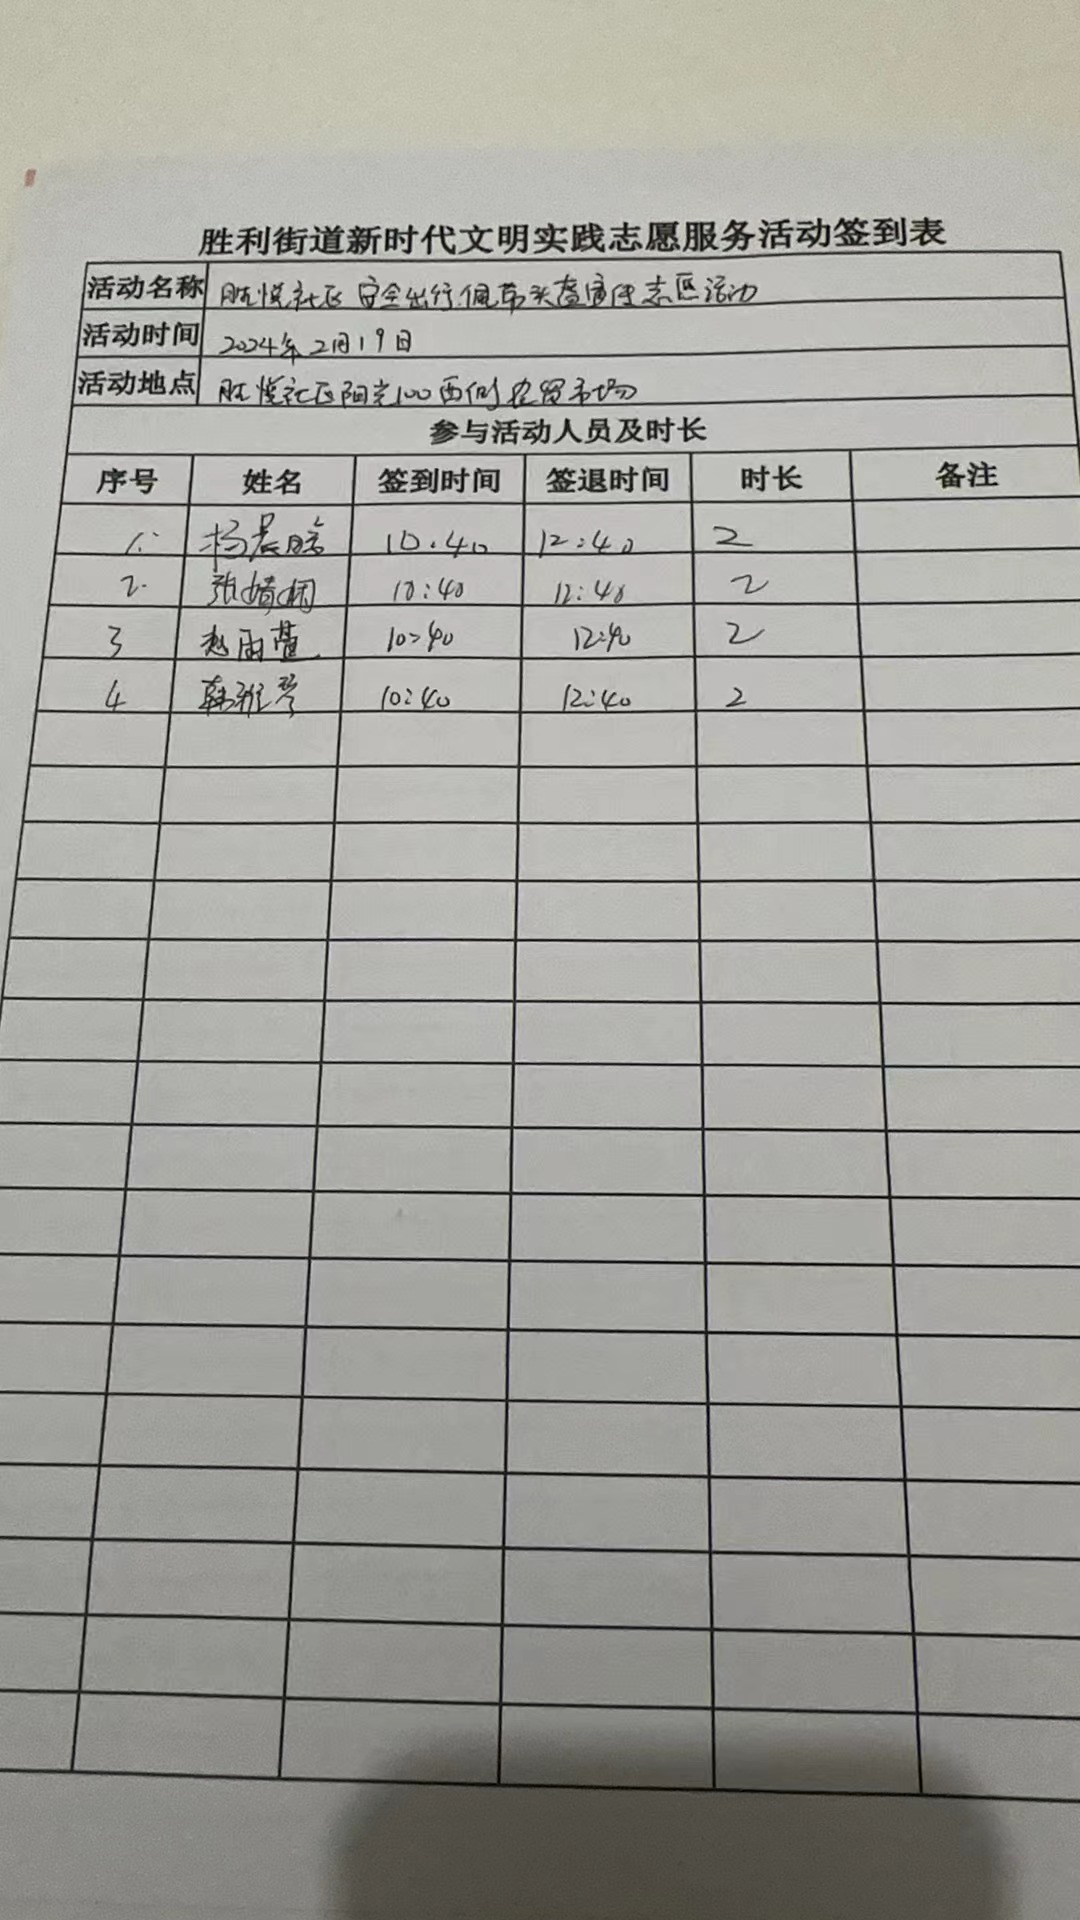 胜利街道新时代文明实践志愿服务活动签到表
活动名称 胜悦社区 安全出行,佩带头盔宣传志愿活动
活动时间 2024年2月19日
活动地点 胜悦社区阳光100西侧农贸市场
参与活动人员及时长
序号 姓名 签到时间 签退时间 时长 备注
1. 杨晨 10.40 12:40 2
2. 张婧 10:40 12:40 2
3 赵雨萱 10:40 12:40 2
4 韩雅琴 10:40 12:40 2